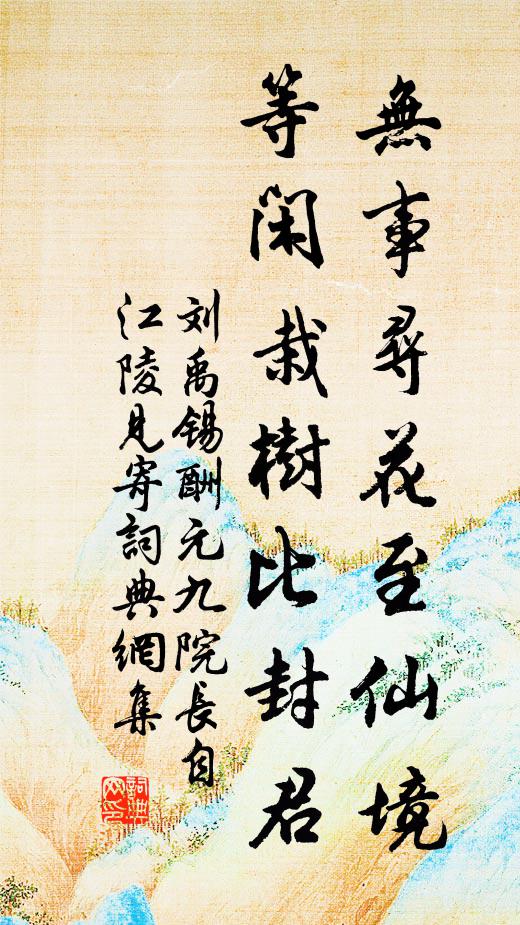 無事尋花至仙境
等閑栽樹比封君
刘禹锡酬元九院長自
江陵見寄詞典網集
詞典
网印